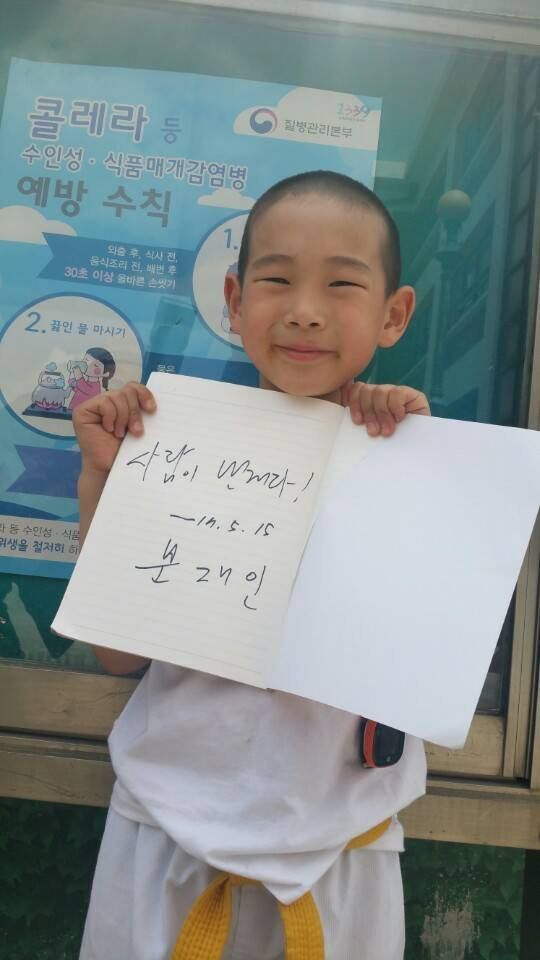 1339
콜레라 등
질병관리본부
수인성 · 식품매개감염병
예방 수칙
1.
외출 후, 식사 전,
음식조리 전, 배변 후
30초 이상 올바른 손씻기
2. 끓인 물 마시기
물은
사람이 먼저다!
-17.5.15
문재인
라 등 수인성 · 식품
위생을 철저히 하